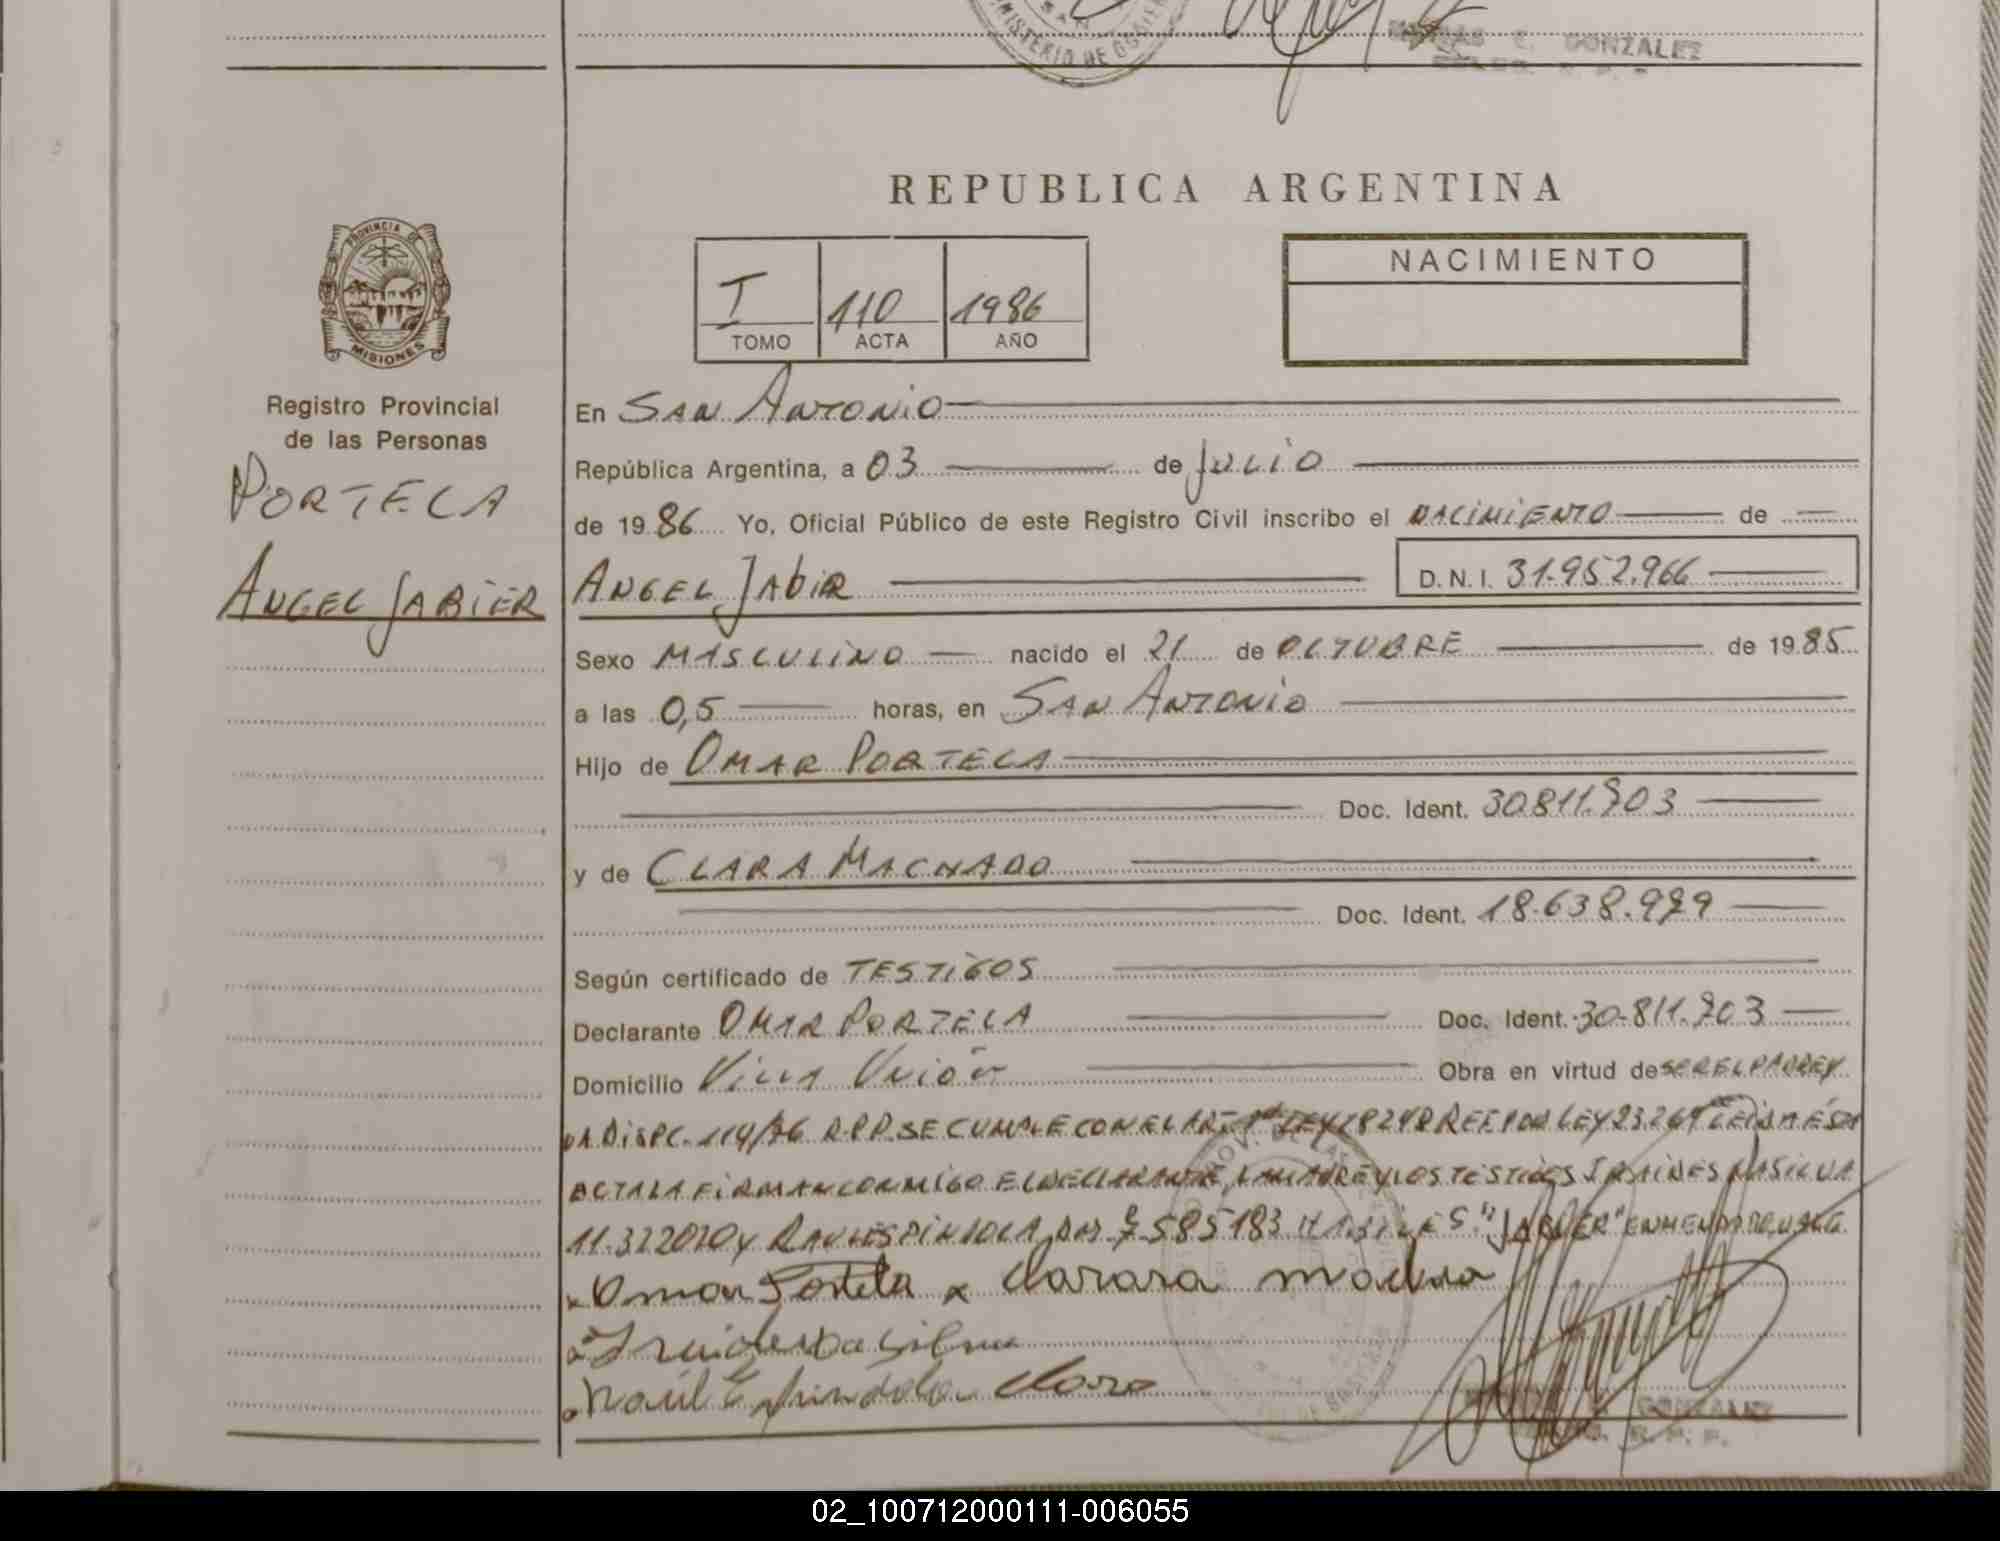 MINISTERIO DE
E. GONZALEZ
REPUBLICA ARGENTINA
PROVINCIA DE
MISIONES
Registro Provincial
de las Personas
PORTELA
ANGEL JABIER
I 110 1986
TOMO ACTA AÑO
NACIMIENTO
En SAN ANTONIO
República Argentina, a 03 de JULIO
de 1986 Yo, Oficial Público de este Registro Civil inscribo el NACIMIENTO de
ANGEL JABIR D.N.I. 31.952.966
Sexo MASCULINO nacido el 21 de OCTUBRE de 1985
a las 0,5 horas, en SAN ANTONIO
Hijo de OMAR PORTELA
Doc. Ident. 30.811.703
y de CLARA MACHADO
Doc. Ident. 18.638.979
Según certificado de TESTIGOS
Declarante OMAR PORTELA Doc. Ident. 30.811.703
Domicilio VILLA UNIÓN Obra en virtud de SER EL PADRE Y
DISPC. 114/76 R.P.P. SE CUMPLE CON EL ART. 1º LEY 18248 REF. POR LEY 23.264 LEIDA ÉSTA
ACTA LA FIRMAN CONMIGO EL DECLARANTE, LA MADRE Y LOS TESTIGOS DASILVA
Y RAUL ESPINDOLA 7.585.183 HABILES "JABIER" ENMENDADO, VALE.
Omar Portela x Clarara
da Silva
Raúl Espindola
GONZALEZ
R. P. P.
02_100712000111-006055